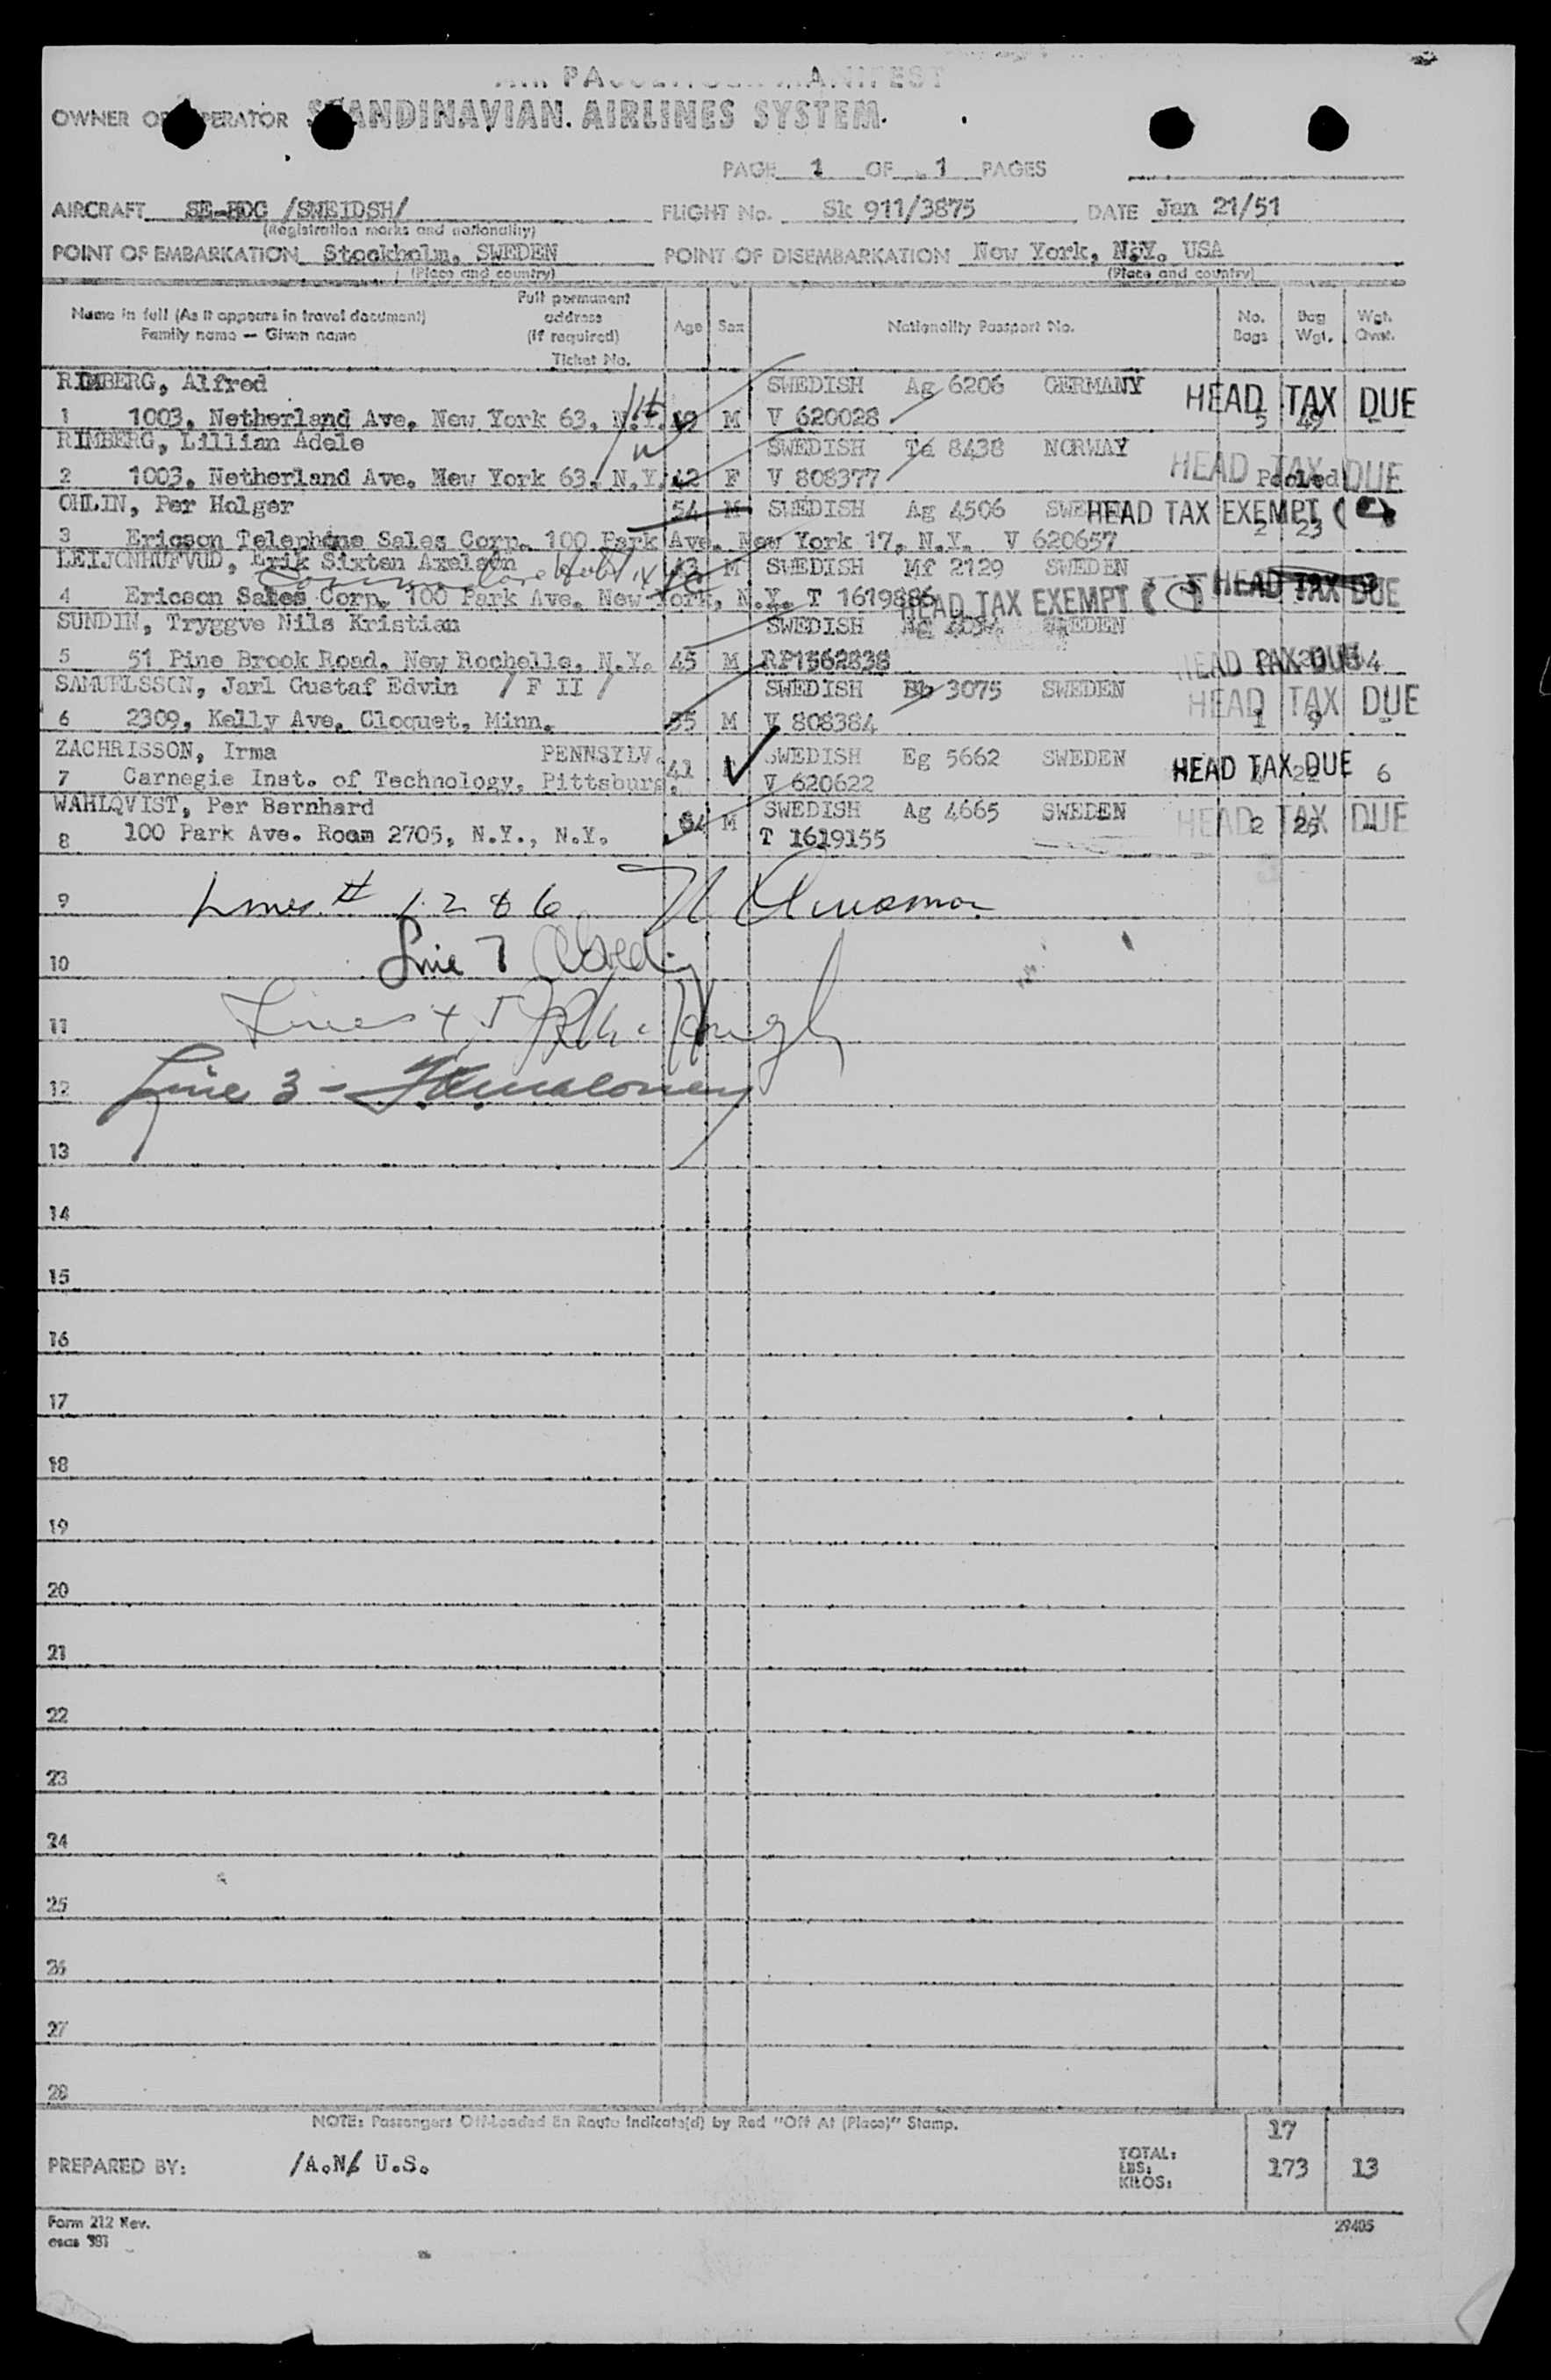 AIR PASSENGER MANIFEST
OWNER OR OPERATOR SCANDINAVIAN AIRLINES SYSTEM.
PAGE 1 OF 1 PAGES
AIRCRAFT /SWEIDSH/ FLIGHT No. Sk 911/3875 DATE Jan 21/51
(Registration marks and nationality)
POINT OF EMBARKATION Stockholm, SWEDEN POINT OF DISEMBARKATION New York, N.Y. USA
(Place and country) (Place and country)
Name in full (As it appears in travel document) Family name — Given name Full permanent address (if required) Ticket No. Age Sex Nationality Passport No. No. Bags Bag Wgt. Wgt.
RIMBERG, Alfred SWEDISH Ag 6206 GERMANY HEAD TAX DUE
1 1003, Netherland Ave. New York 63, N.Y. M V 620028 5 49 -
RIMBERG, Lillian Adele SWEDISH 8438 NORWAY HEAD TAX DUE
2 1003, Netherland Ave. New York 63, N.Y. 42 F V 808377 Pooled
OHLIN, Per Holger 54 M SWEDISH Ag 4506 SWEDEN HEAD TAX EXEMPT
3 Ericson Telephone Sales Corp. 100 Park Ave. New York 17, N.Y. V 620657 2 23
LEIJONHUFVUD, Erik Sixten Axelson 43 M SWEDISH Mf 2129 SWEDEN
4 Ericson Sales Corp. 100 Park Ave. New York, N.Y. T 1619886 HEAD TAX EXEMPT HEAD TAX DUE
SUNDIN, Tryggve Nils Kristian SWEDISH SWEDEN
5 51 Pine Brook Road, New Rochelle, N.Y. 45 M RP1562838 HEAD TAX DUE 4
SAMUELSSON, Jarl Gustaf Edvin / F II / SWEDISH Bb 3075 SWEDEN HEAD TAX DUE
6 2309, Kelly Ave. Cloquet, Minn. 35 M V 808384 1 9 -
ZACHRISSON, Irma PENNSYLV. 41 SWEDISH Eg 5662 SWEDEN HEAD TAX DUE
7 Carnegie Inst. of Technology, Pittsburg. V 620622 6
WAHLQVIST, Per Bernhard M SWEDISH Ag 4665 SWEDEN HEAD TAX DUE
8 100 Park Ave. Room 2705, N.Y., N.Y. T 1619155 2 25 -
9 Lines # 1 2 8 6
10 Line 7
11 Lines 4, 5
12 Line 3 -
13
14
15
16
17
18
19
20
21
22
23
24
25
26
27
28
NOTE: Passengers Off-Loaded En Route Indicate(d) by Red "Off At (Place)" Stamp.
17
PREPARED BY: /A.N/ U.S. TOTAL: LBS: KILOS: 173 13
Form 212 Rev. 29405